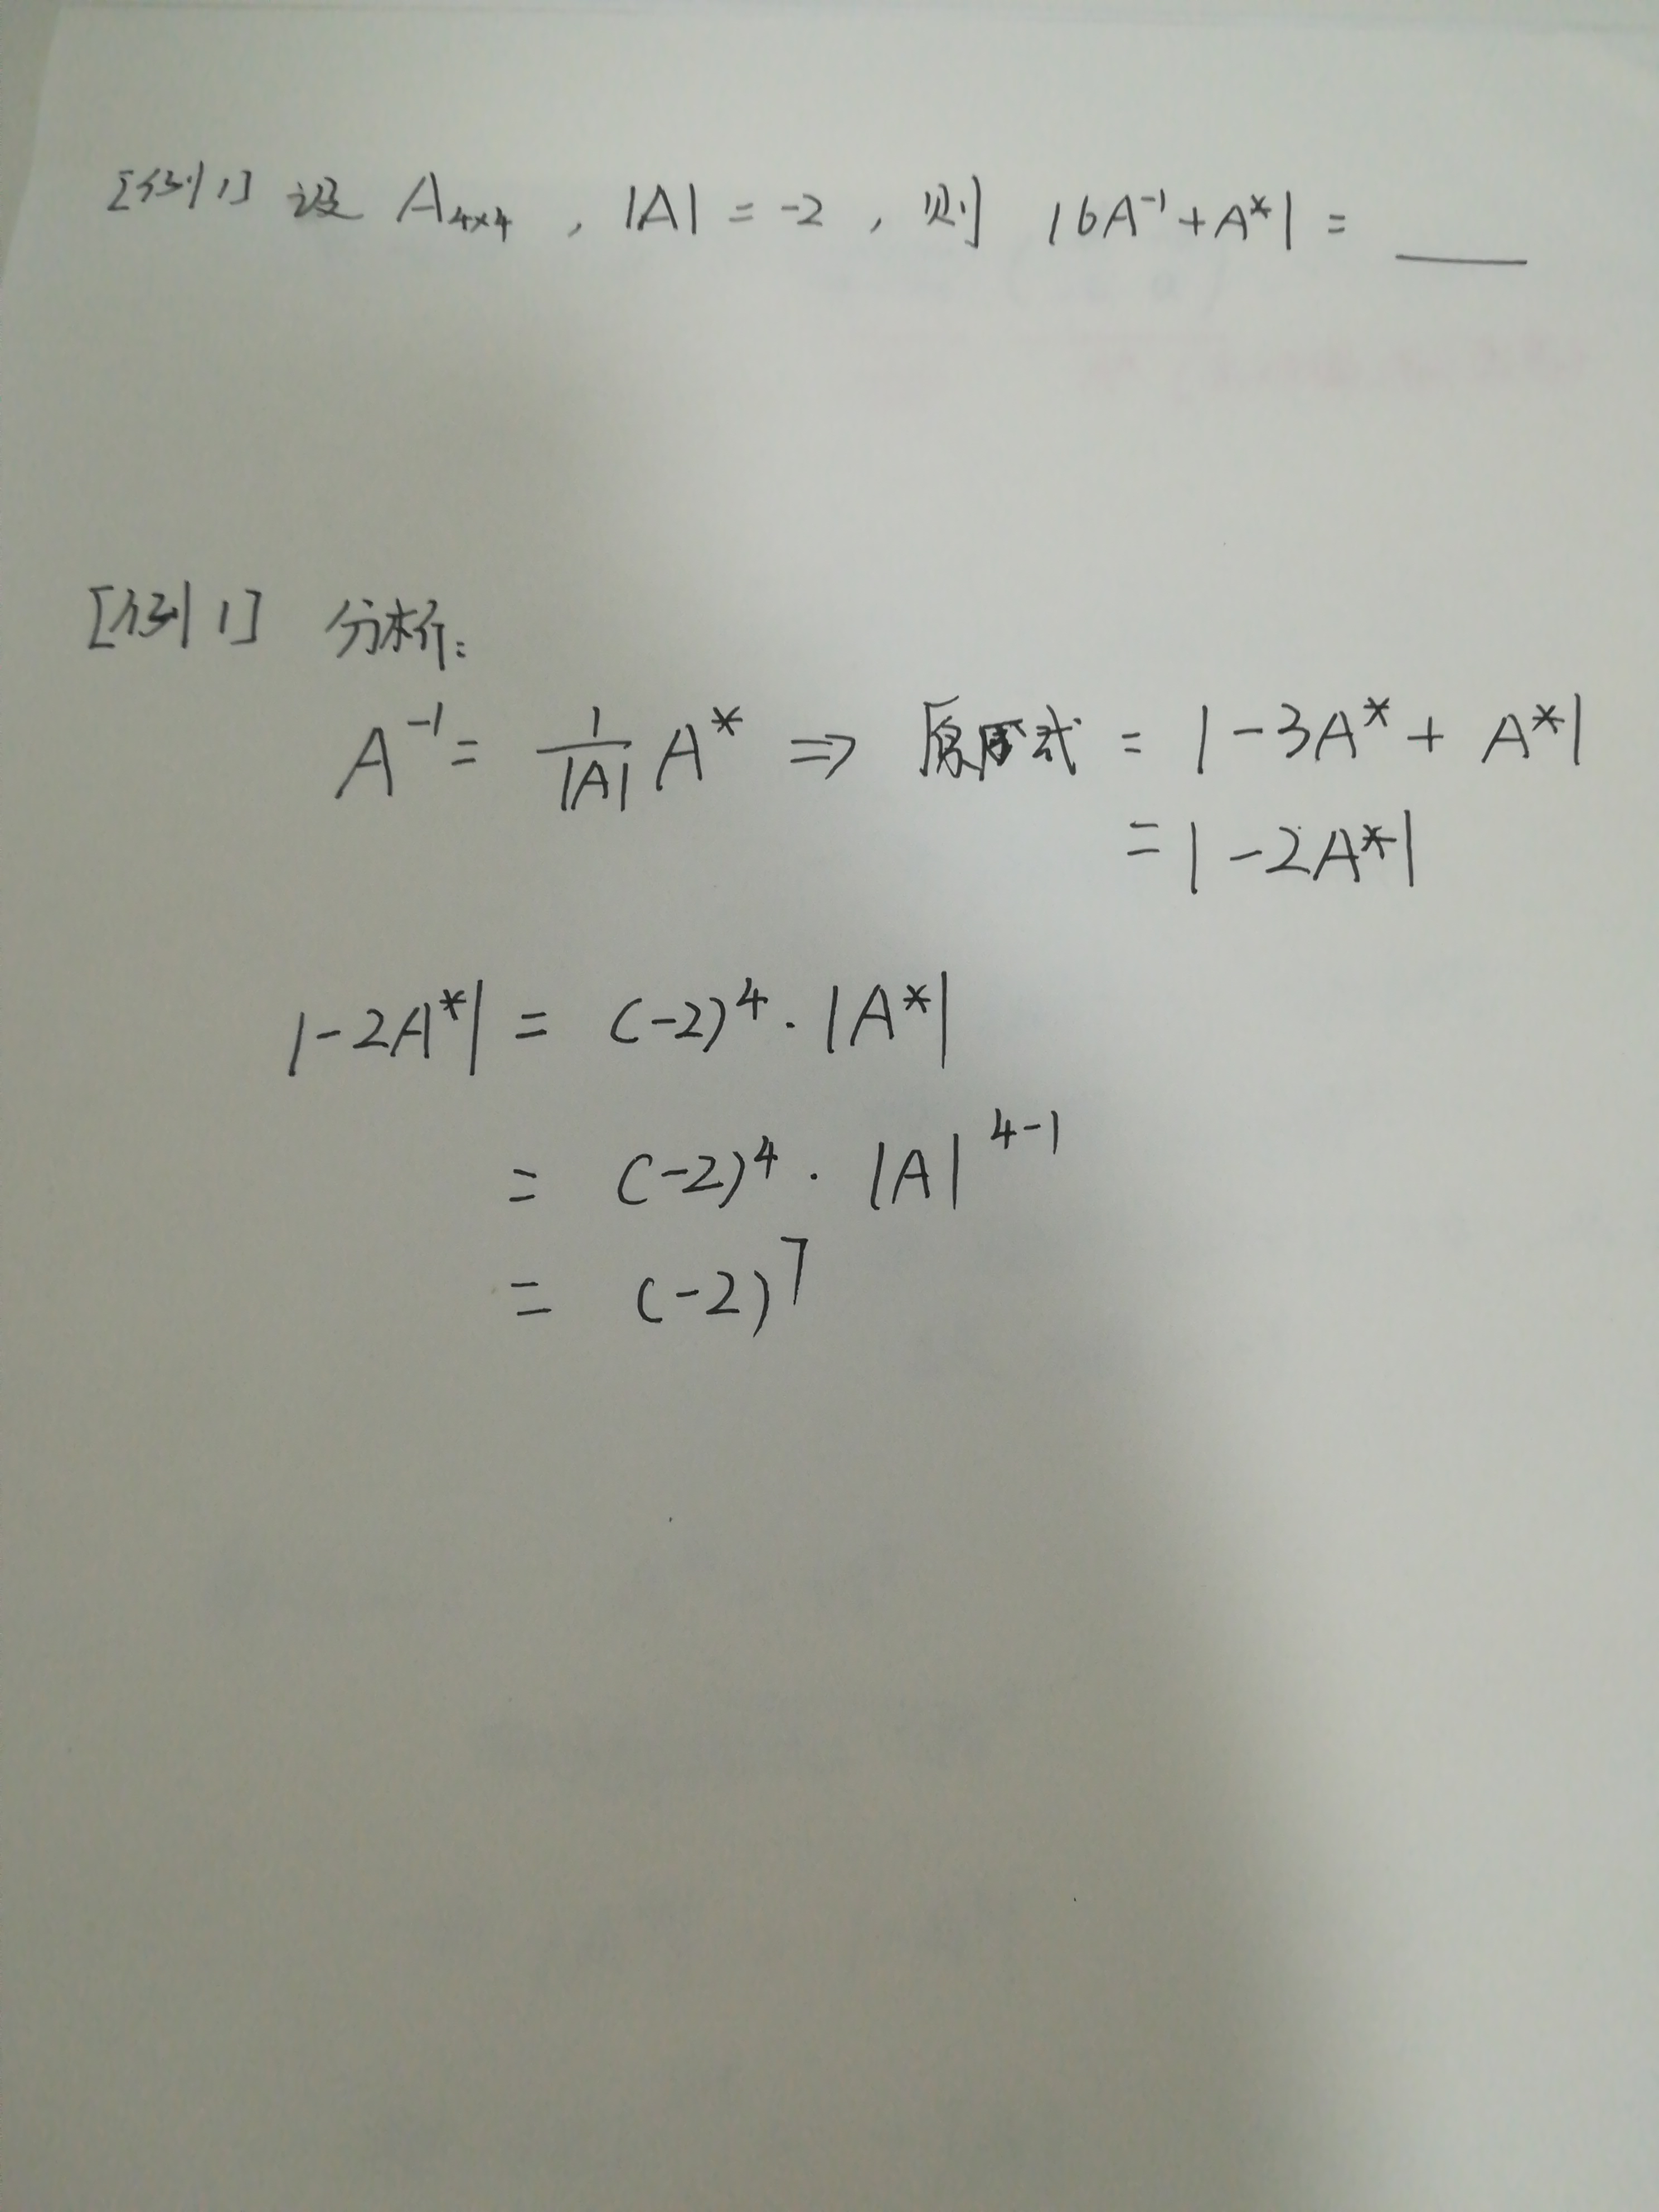 [例1] 设 A₄ₓ₄ , |A| = -2 , 则 |6A⁻¹+A*| = ____
[例1] 分析:
A⁻¹ = 1/|A| A* ⇒ 原式 = |-3A* + A*|
= |-2A*|
|-2A*| = (-2)⁴ · |A*|
= (-2)⁴ · |A|⁴⁻¹
= (-2)⁷